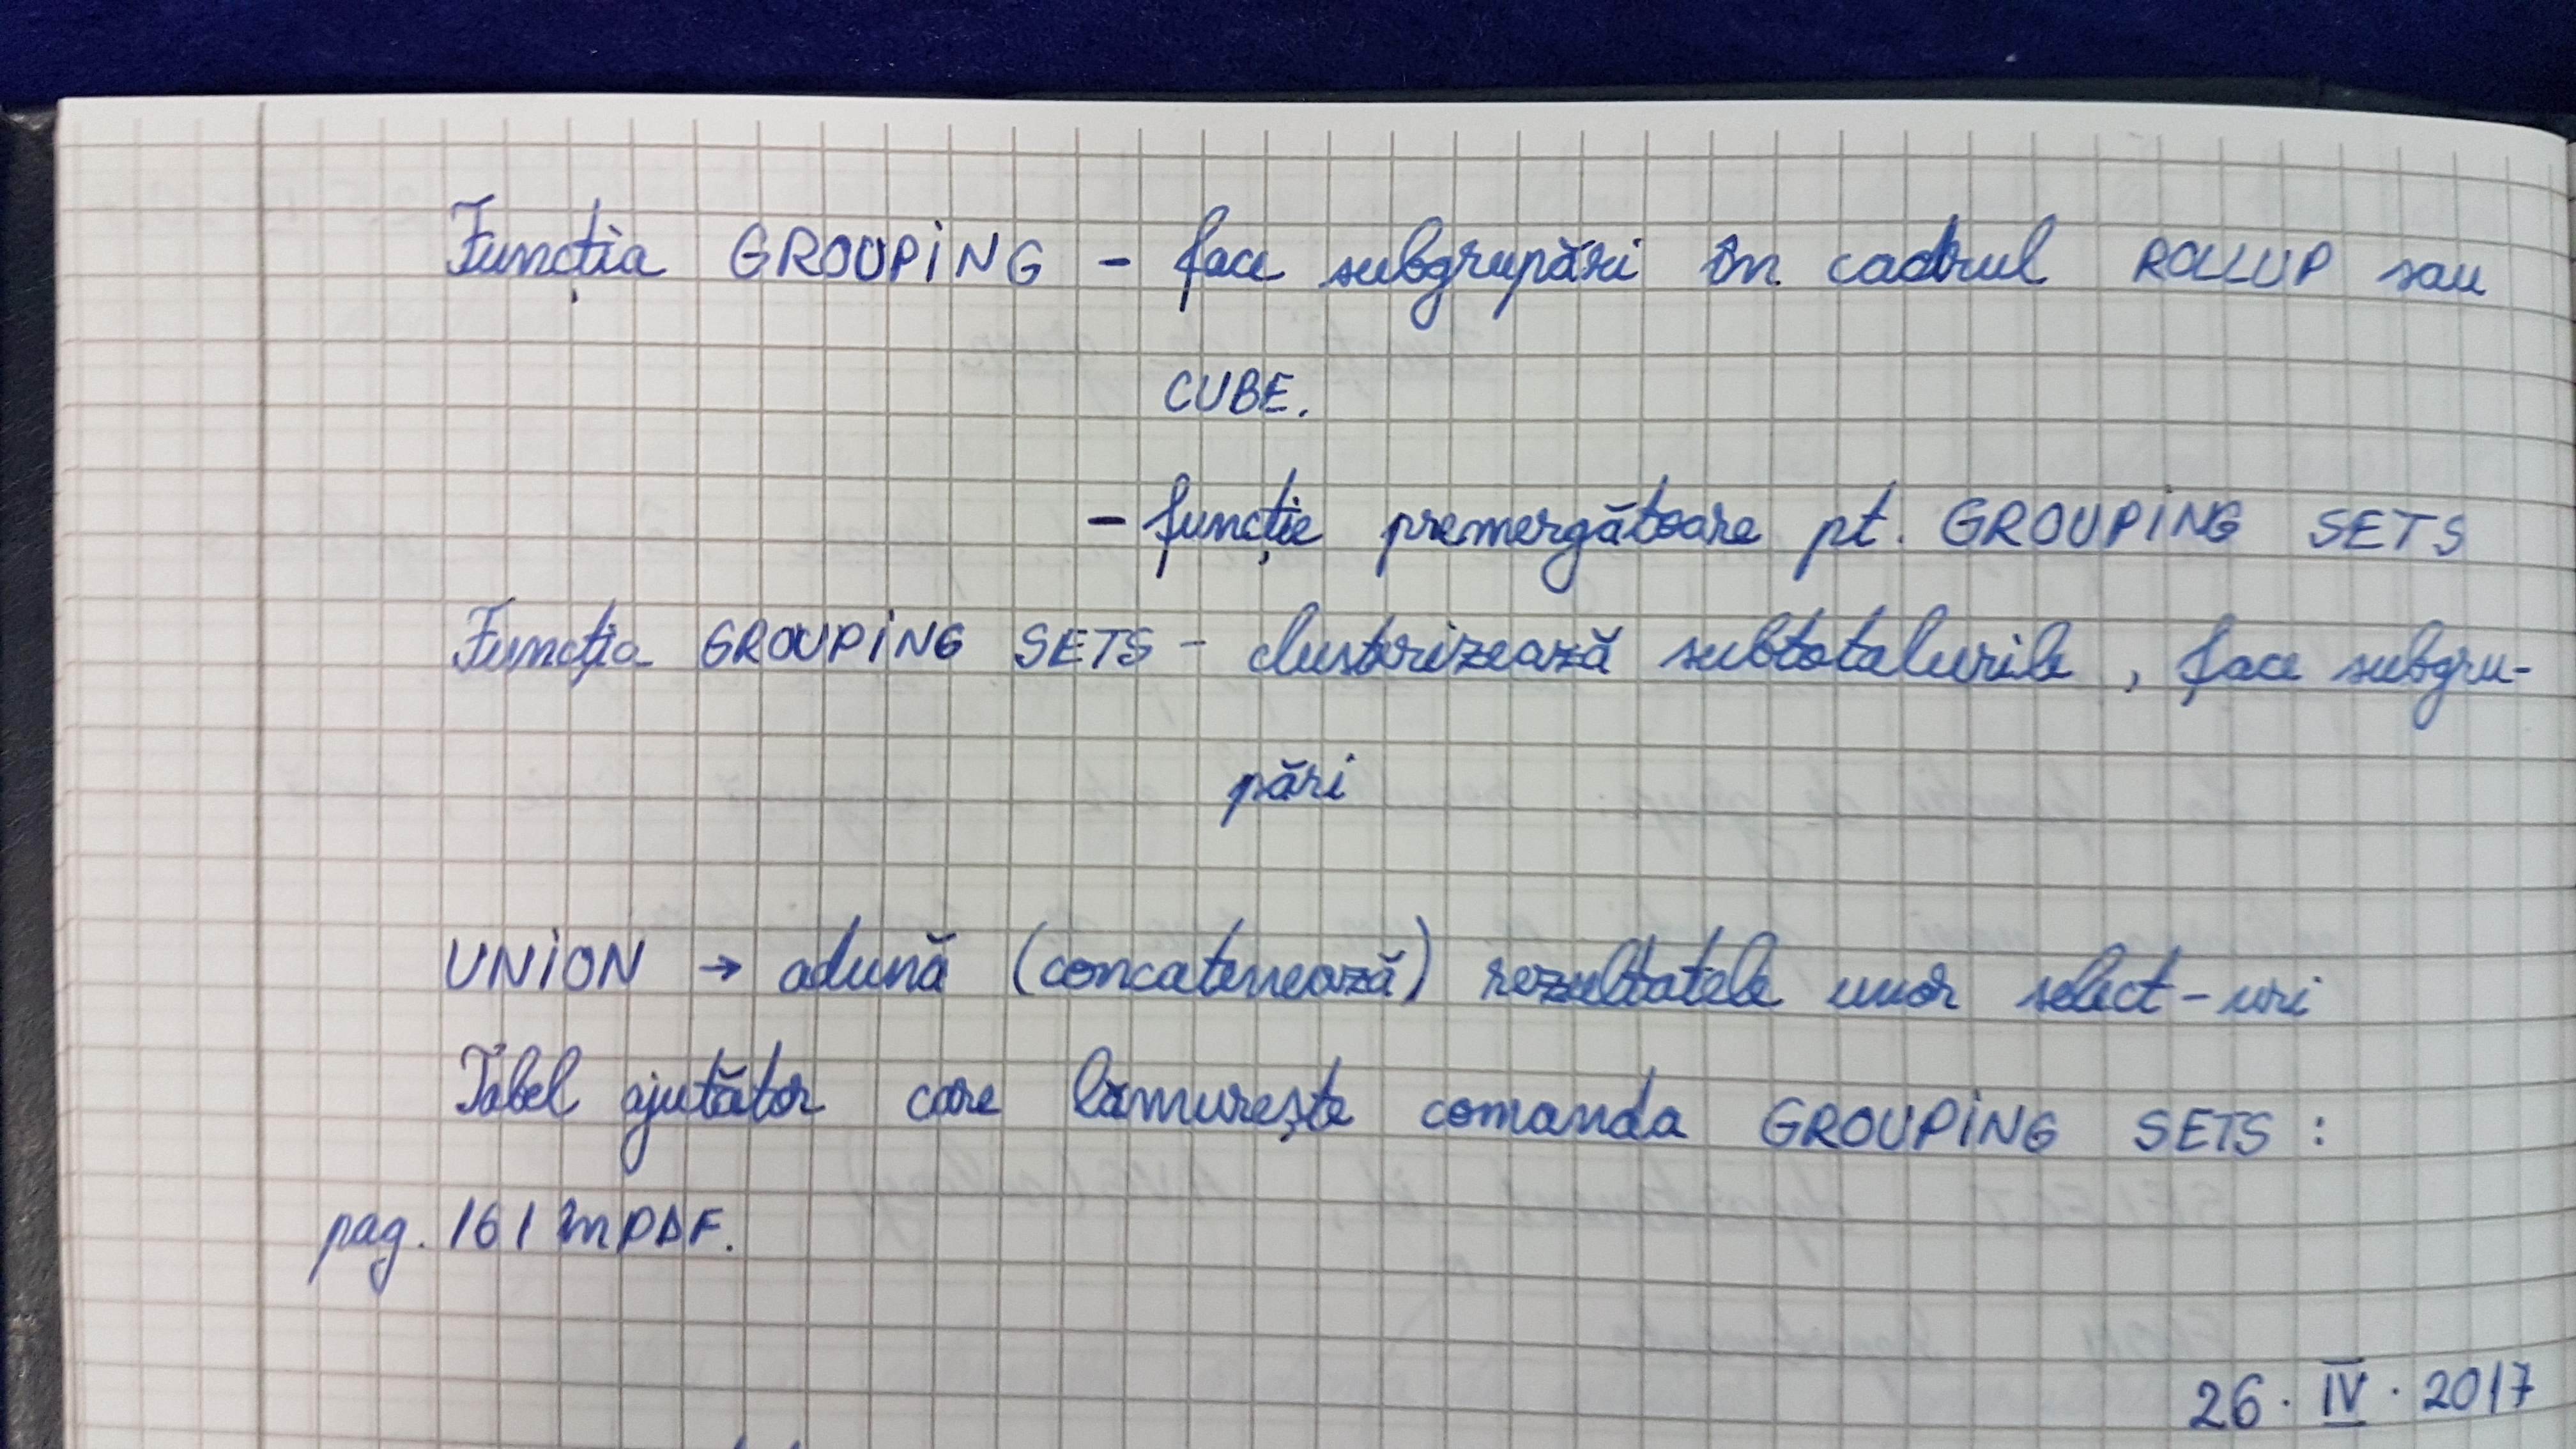 Funcția GROUPING - face subgrupări în cadrul ROLLUP sau
CUBE.
- funcție premergătoare pt. GROUPING SETS
Funcția GROUPING SETS - clusterizează subtotalurile, face subgru-
pări
UNION → adună (concatenează) rezultatele unor select-uri
Tabel ajutător care lămurește comanda GROUPING SETS:
pag. 161 în PDF.
26. IV. 2017